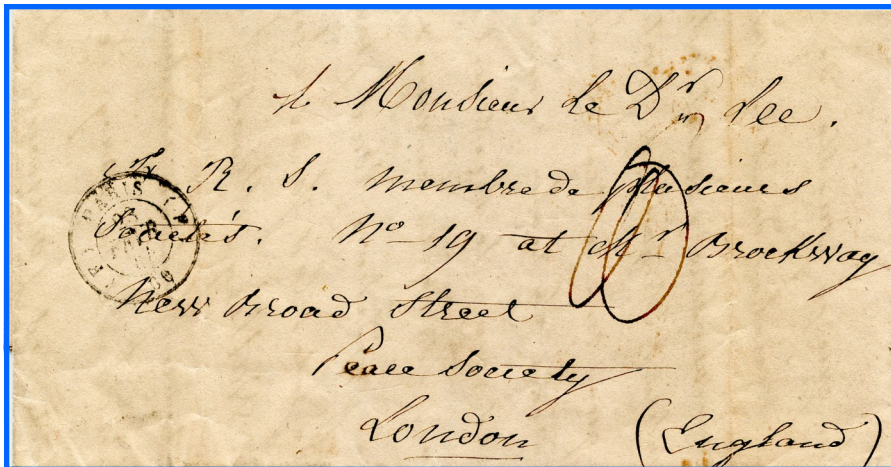 A Monsieur Le Dr. Lee.
F. R. S. membre de plusieurs
Societés. No 19 at Mr Brockway
New Broad Street
Peace Society
London (England)
PARIS